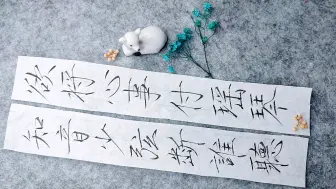 欲将心事付瑶琴
知音少弦断誰聽